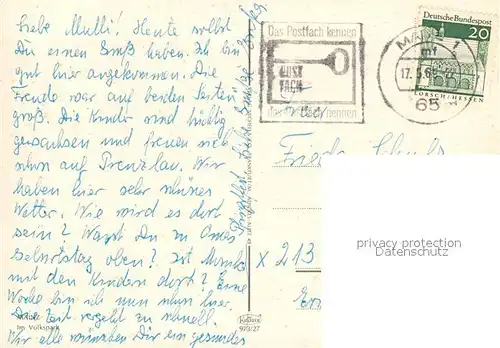 Liebe Mulli! Heute sollst
Du einen Gruß haben. Ich bin
gut hier angekommen. Die
Freude war auf beiden Seiten
groß. Die Kinder sind tüchtig
gewachsen und freuen sich
schon auf Prenzlau. Wir
haben hier sehr schönes
Wetter. Wie wird es dort
sein? Warst Du zu Omas
Geburtstag oben? Ist
mit den Kindern dort? Eine
Woche bin ich nun schon hier.
Die Zeit vergeht zu schnell.
Wir alle wünschen Dir ein gesundes
Pfingstfest
MAINZ
Im Volkspark
Das Postfach kennen
POST
FACH
das Postfach nennen
MAINZ 1
mf
17. 5. 6
65
Deutsche Bundespost
20
LORSCH/HESSEN
Frieda
x 213
privacy protection
Datenschutz
973/27